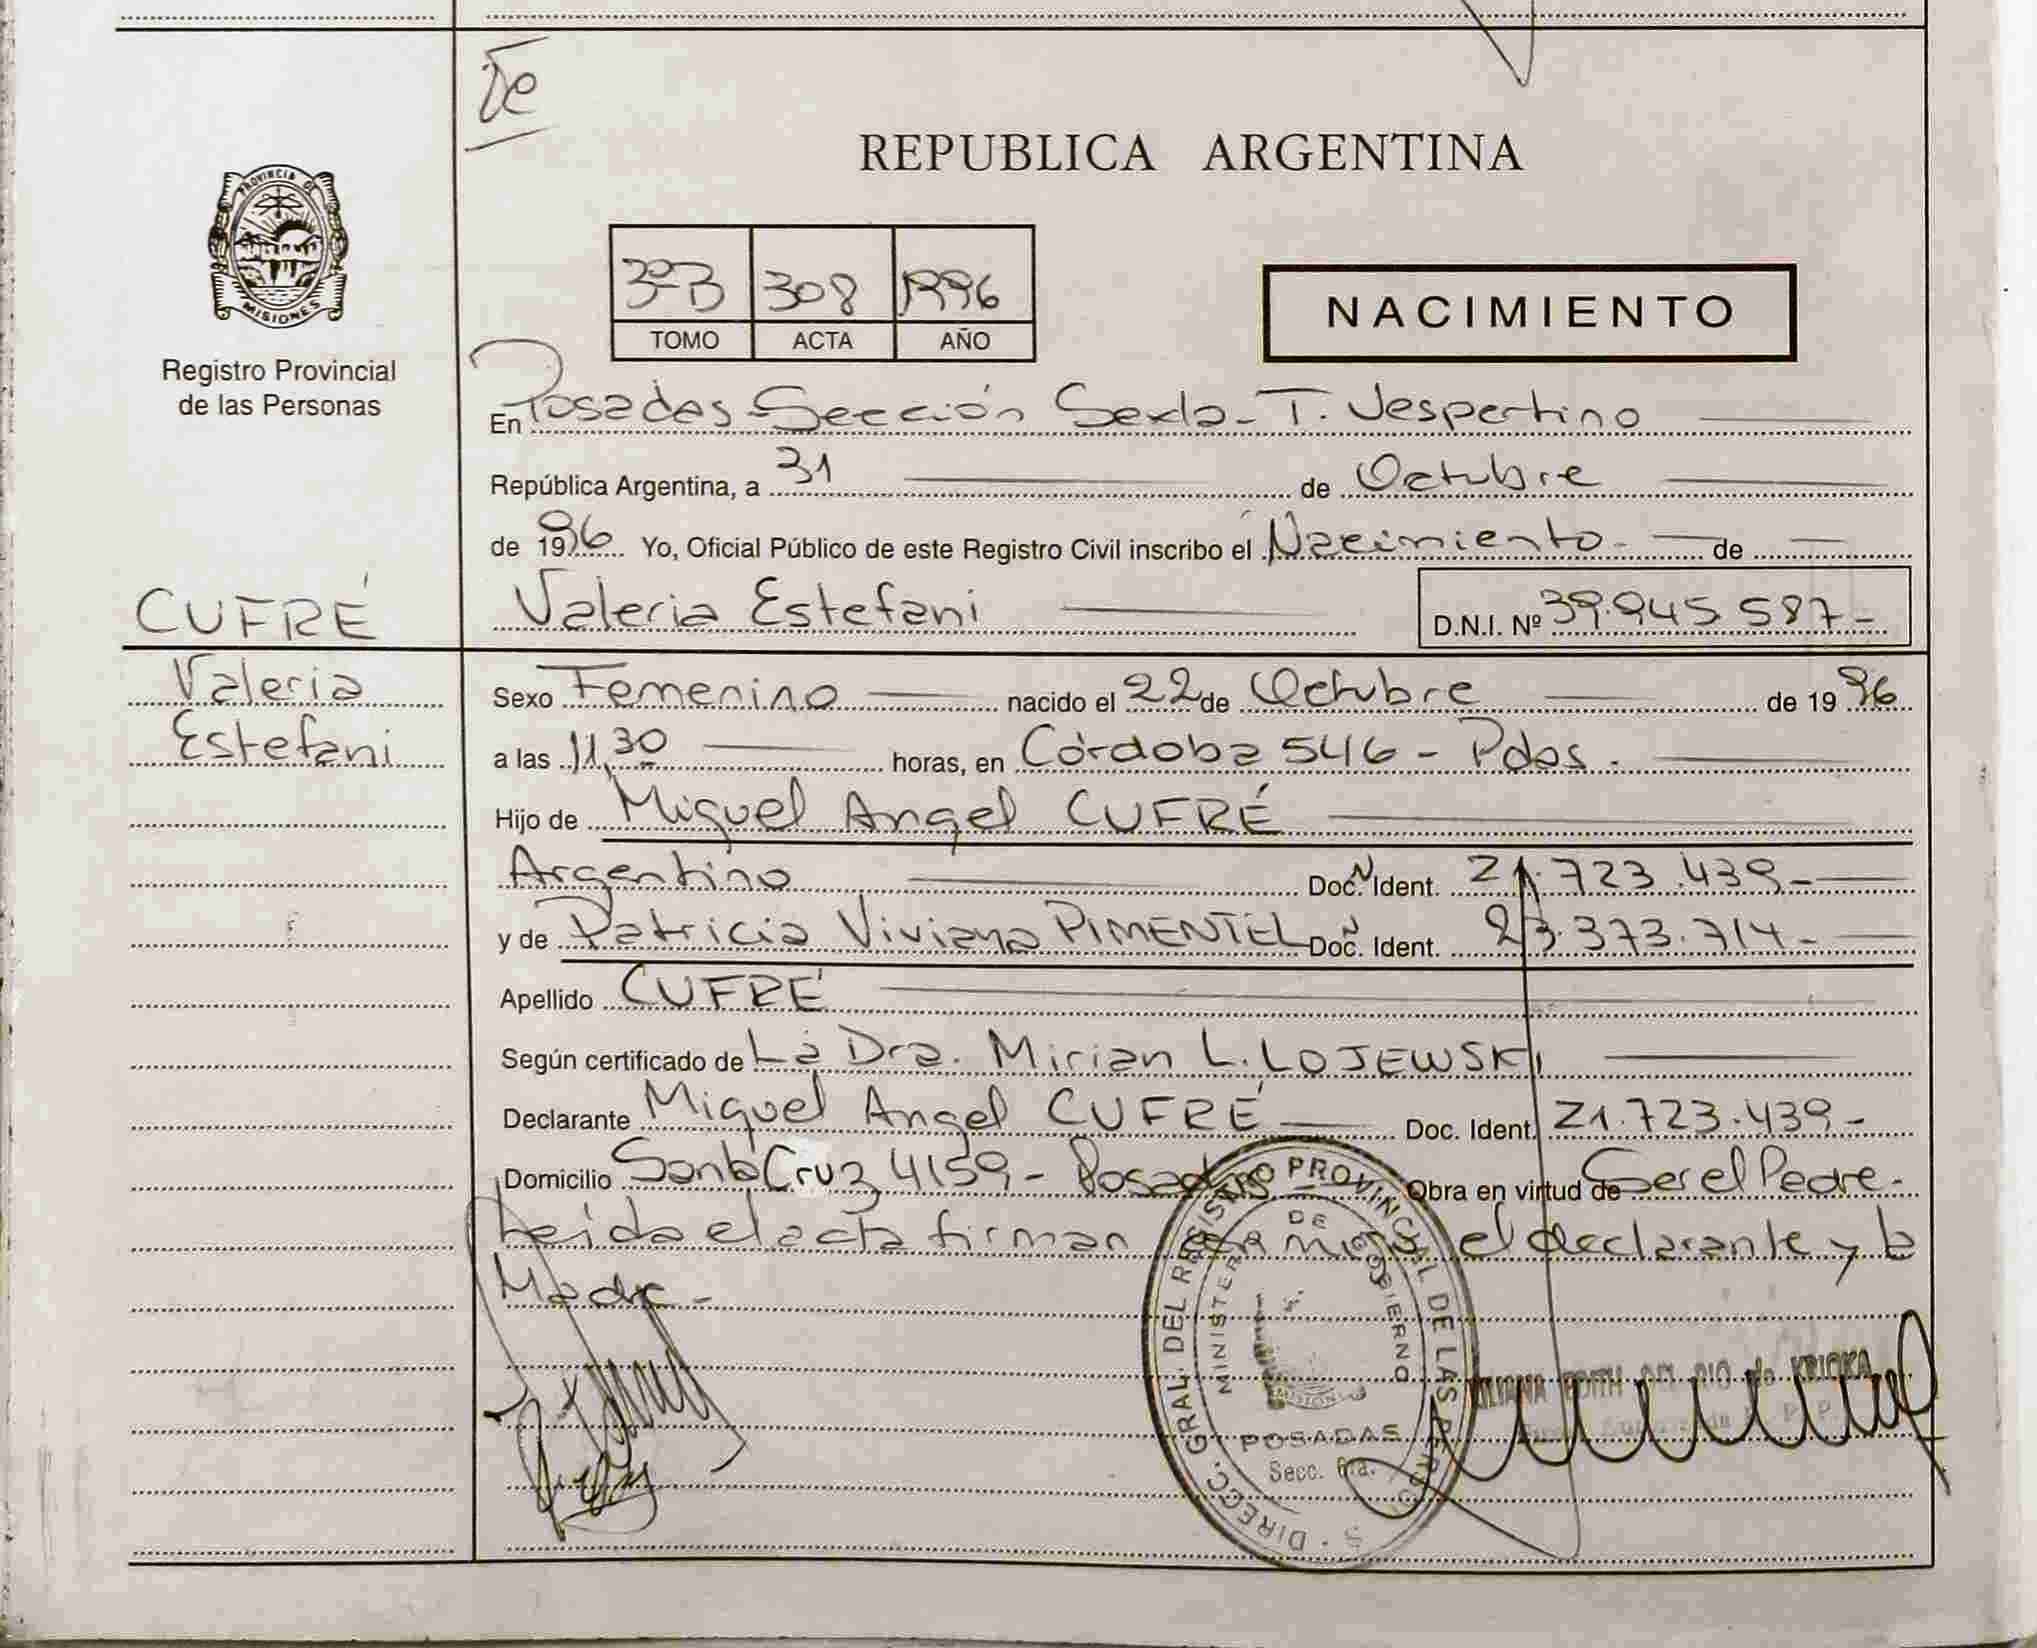 Te
REPUBLICA ARGENTINA
PROVINCIA DE
MISIONES
Registro Provincial
de las Personas
3ºB 308 1996
TOMO ACTA AÑO
NACIMIENTO
En Posadas Sección Sexta - T. Vespertino
República Argentina, a 31 de Octubre
de 1996 Yo, Oficial Público de este Registro Civil inscribo el Nacimiento - de
CUFRÉ
Valeria Estefani D.N.I. Nº 39.945.587-
Valeria
Estefani
Sexo Femenino nacido el 22 de Octubre de 1996
a las 11,30 horas, en Córdoba 546 - Pdas.
Hijo de Miguel Angel CUFRÉ
Argentino Doc. N Ident. 21.723.439-
y de Patricia Viviana PIMENTEL Doc. N Ident. 23.373.714-
Apellido CUFRÉ
Según certificado de La Dra. Mirian L. LOJEWSKI
Declarante Miguel Angel CUFRÉ Doc. Ident. 21.723.439-
Domicilio Santa Cruz 4159 - Posadas Obra en virtud de Ser el Padre.
Leida el acta firman el declarante y la
Madre -
DIRECC. GRAL. DEL REGISTRO PROVINCIAL DE LAS PERSONAS
MINISTERIO DE GOBIERNO
MISIONES
POSADAS
Secc. 6ta.
LILIANA EDITH DEL RIO de KRICKA